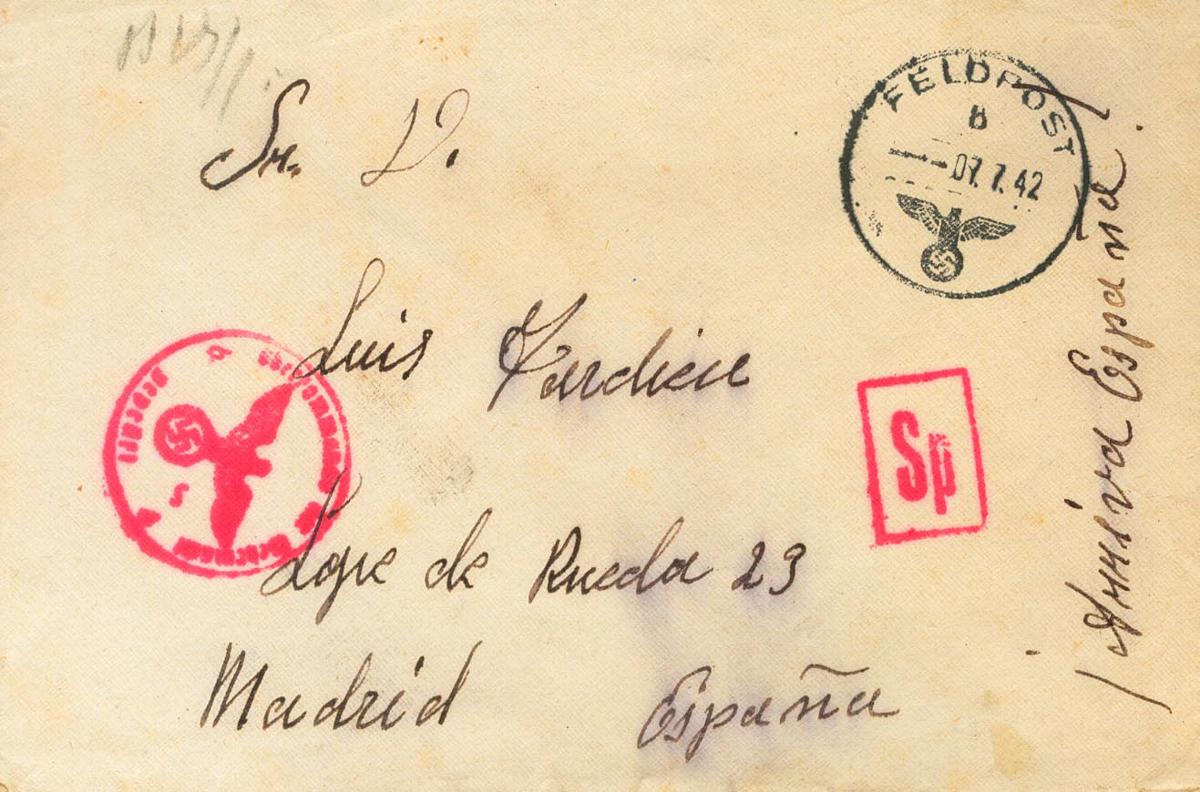 FELDPOST
b
07.7.42
Sr. D.
Luis
Sp
Lope de Rueda 23
Madrid España
¡Arriva España!